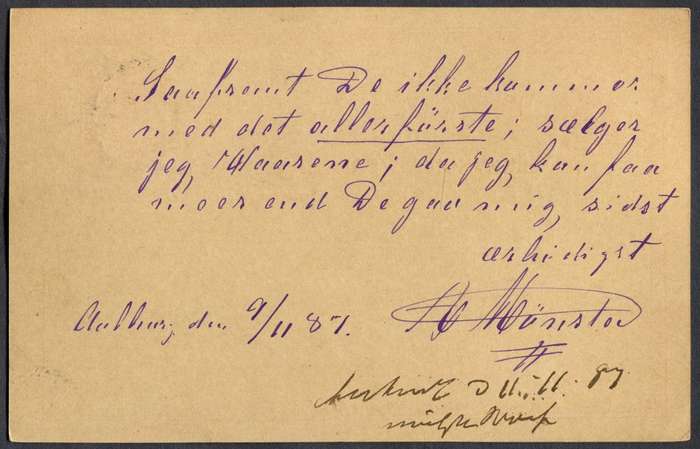 Saafremt De ikke kommer
med det allerførste; sælger
jeg, Waarene; da jeg, kan faa
meer end De gav mig, sidst
ærbødigst
Aalborg, den 9/11 87. Münster
11.11.87